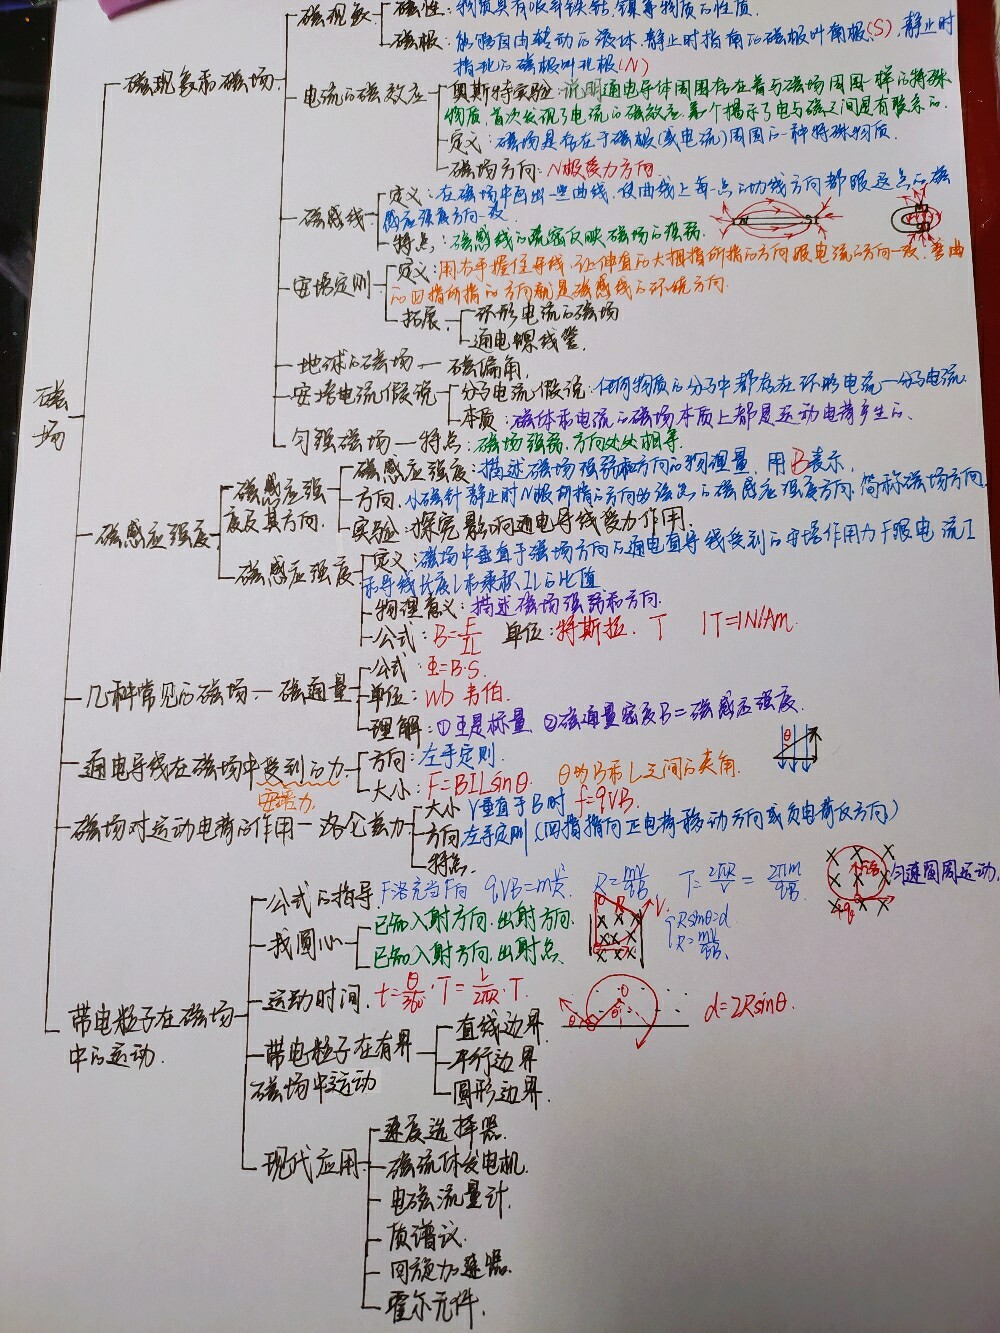 磁场
磁现象和磁场
磁现象
磁性：物质具有吸引铁、钴、镍等物质的性质.
磁极：能够自由转动的磁体，静止时指南的磁极叫南极(S)，静止时
指北的磁极叫北极(N)
电流的磁效应
奥斯特实验：说明通电导体周围存在着与磁场周围一样的特殊
物质，首次发现了电流的磁效应，第一个揭示了电与磁之间是有联系的.
定义：磁场是存在于磁极(或电流)周围的一种特殊物质.
磁场方向：N极受力方向.
磁感线
定义：在磁场中画出一些曲线，使曲线上每一点的切线方向都跟这点的磁
感应强度方向一致.
特点：磁感线的疏密反映磁场的强弱.
安培定则
定义：用右手握住导线，让伸直的大拇指所指的方向跟电流的方向一致，弯曲
的四指所指的方向就是磁感线的环绕方向.
拓展
环形电流的磁场
通电螺线管.
地球的磁场 — 磁偏角.
安培电流假说
分子电流假说：任何物质的分子中都存在环形电流—分子电流.
本质：磁体和电流的磁场本质上都是运动电荷产生的.
匀强磁场 — 特点：磁场强弱、方向处处相等
磁感应强度
磁感应强
度及其方向.
磁感应强度：描述磁场强弱和方向的物理量，用B表示.
方向. 小磁针静止时N极所指的方向为该点的磁感应强度方向，简称磁场方向.
实验：探究影响通电导线受力作用.
磁感应强度
定义：磁场中垂直于磁场方向的通电直导线受到的安培作用力F跟电流I
和导线长度L和乘积IL的比值
物理意义：描述磁场强弱和方向.
公式：B=F/IL 单位：特斯拉. T 1T=1N/Am.
几种常见的磁场 — 磁通量
公式：Φ=B·S.
单位：Wb 韦伯.
理解：①Φ是标量 ②磁通量密度B=磁感应强度.
通电导线在磁场中受到的力
安培力
方向：左手定则.
大小：F=BILsinθ. θ为B和L之间的夹角.
θ
磁场对运动电荷的作用 — 洛仑兹力
大小 V垂直于B时 f=qVB.
方向 左手定则(四指指向正电荷移动方向或负电荷反方向)
特点.
带电粒子在磁场
中的运动.
公式的指导. F洛充当F向 qVB=mV²/R. R=mV/qB T=2πR/V=2πm/qB
匀速圆周运动.
找圆心
已知入射方向、出射方向.
已知入射方向、出射点.
Rsinθ=d
R=mV/qB.
运动时间. t=θ/360°·T=L/2πR·T.
d=2Rsinθ.
带电粒子在有界
磁场中运动
直线边界.
平行边界
圆形边界.
现代应用
速度选择器.
磁流体发电机.
电磁流量计.
质谱议.
回旋加速器.
霍尔元件.